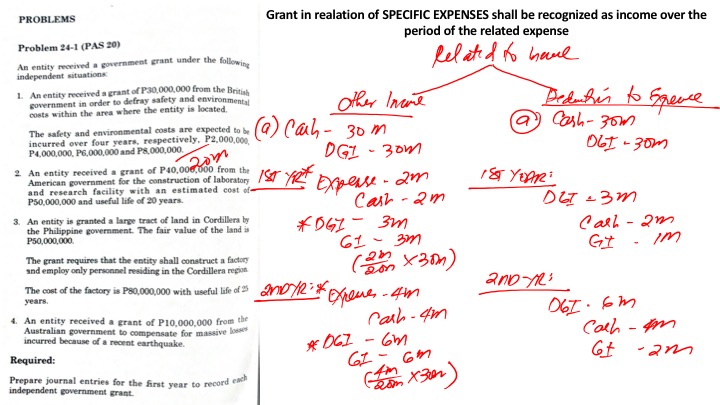 PROBLEMS
Problem 24-1 (PAS 20)
An entity received a government grant under the following
independent situations:
1. An entity received a grant of P30,000,000 from the British
government in order to defray safety and environmental
costs within the area where the entity is located.
The safety and environmental costs are expected to be
incurred over four years, respectively, P2,000,000,
P4,000,000, P6,000,000 and P8,000,000.
20m
2. An entity received a grant of P40,000,000 from the
American government for the construction of laboratory
and research facility with an estimated cost of
P50,000,000 and useful life of 20 years.
3. An entity is granted a large tract of land in Cordillera by
the Philippine government. The fair value of the land is
P50,000,000.
The grant requires that the entity shall construct a factory
and employ only personnel residing in the Cordillera region.
The cost of the factory is P80,000,000 with useful life of 25
years.
4. An entity received a grant of P10,000,000 from the
Australian government to compensate for massive losses
incurred because of a recent earthquake.
Required:
Prepare journal entries for the first year to record each
independent government grant.
Grant in realation of SPECIFIC EXPENSES shall be recognized as income over the
period of the related expense
Related to
Other Income
(a) Cash - 30m
DGI - 30m
1ST YR* Expense - 2m
Cash - 2m
* DGI - 3m
GI - 3m
(2m/20m x 30m)
2ND YR: * Expense - 4m
Cash - 4m
* DGI - 6m
GI - 6m
(4m/20m x 30m)
Deduction to Expense
(a) Cash - 30m
DGI - 30m
1ST YEAR:
DGI - 3m
Cash - 2m
GI - 1m
2ND YR:
DGI - 6m
Cash - 4m
GI - 2m